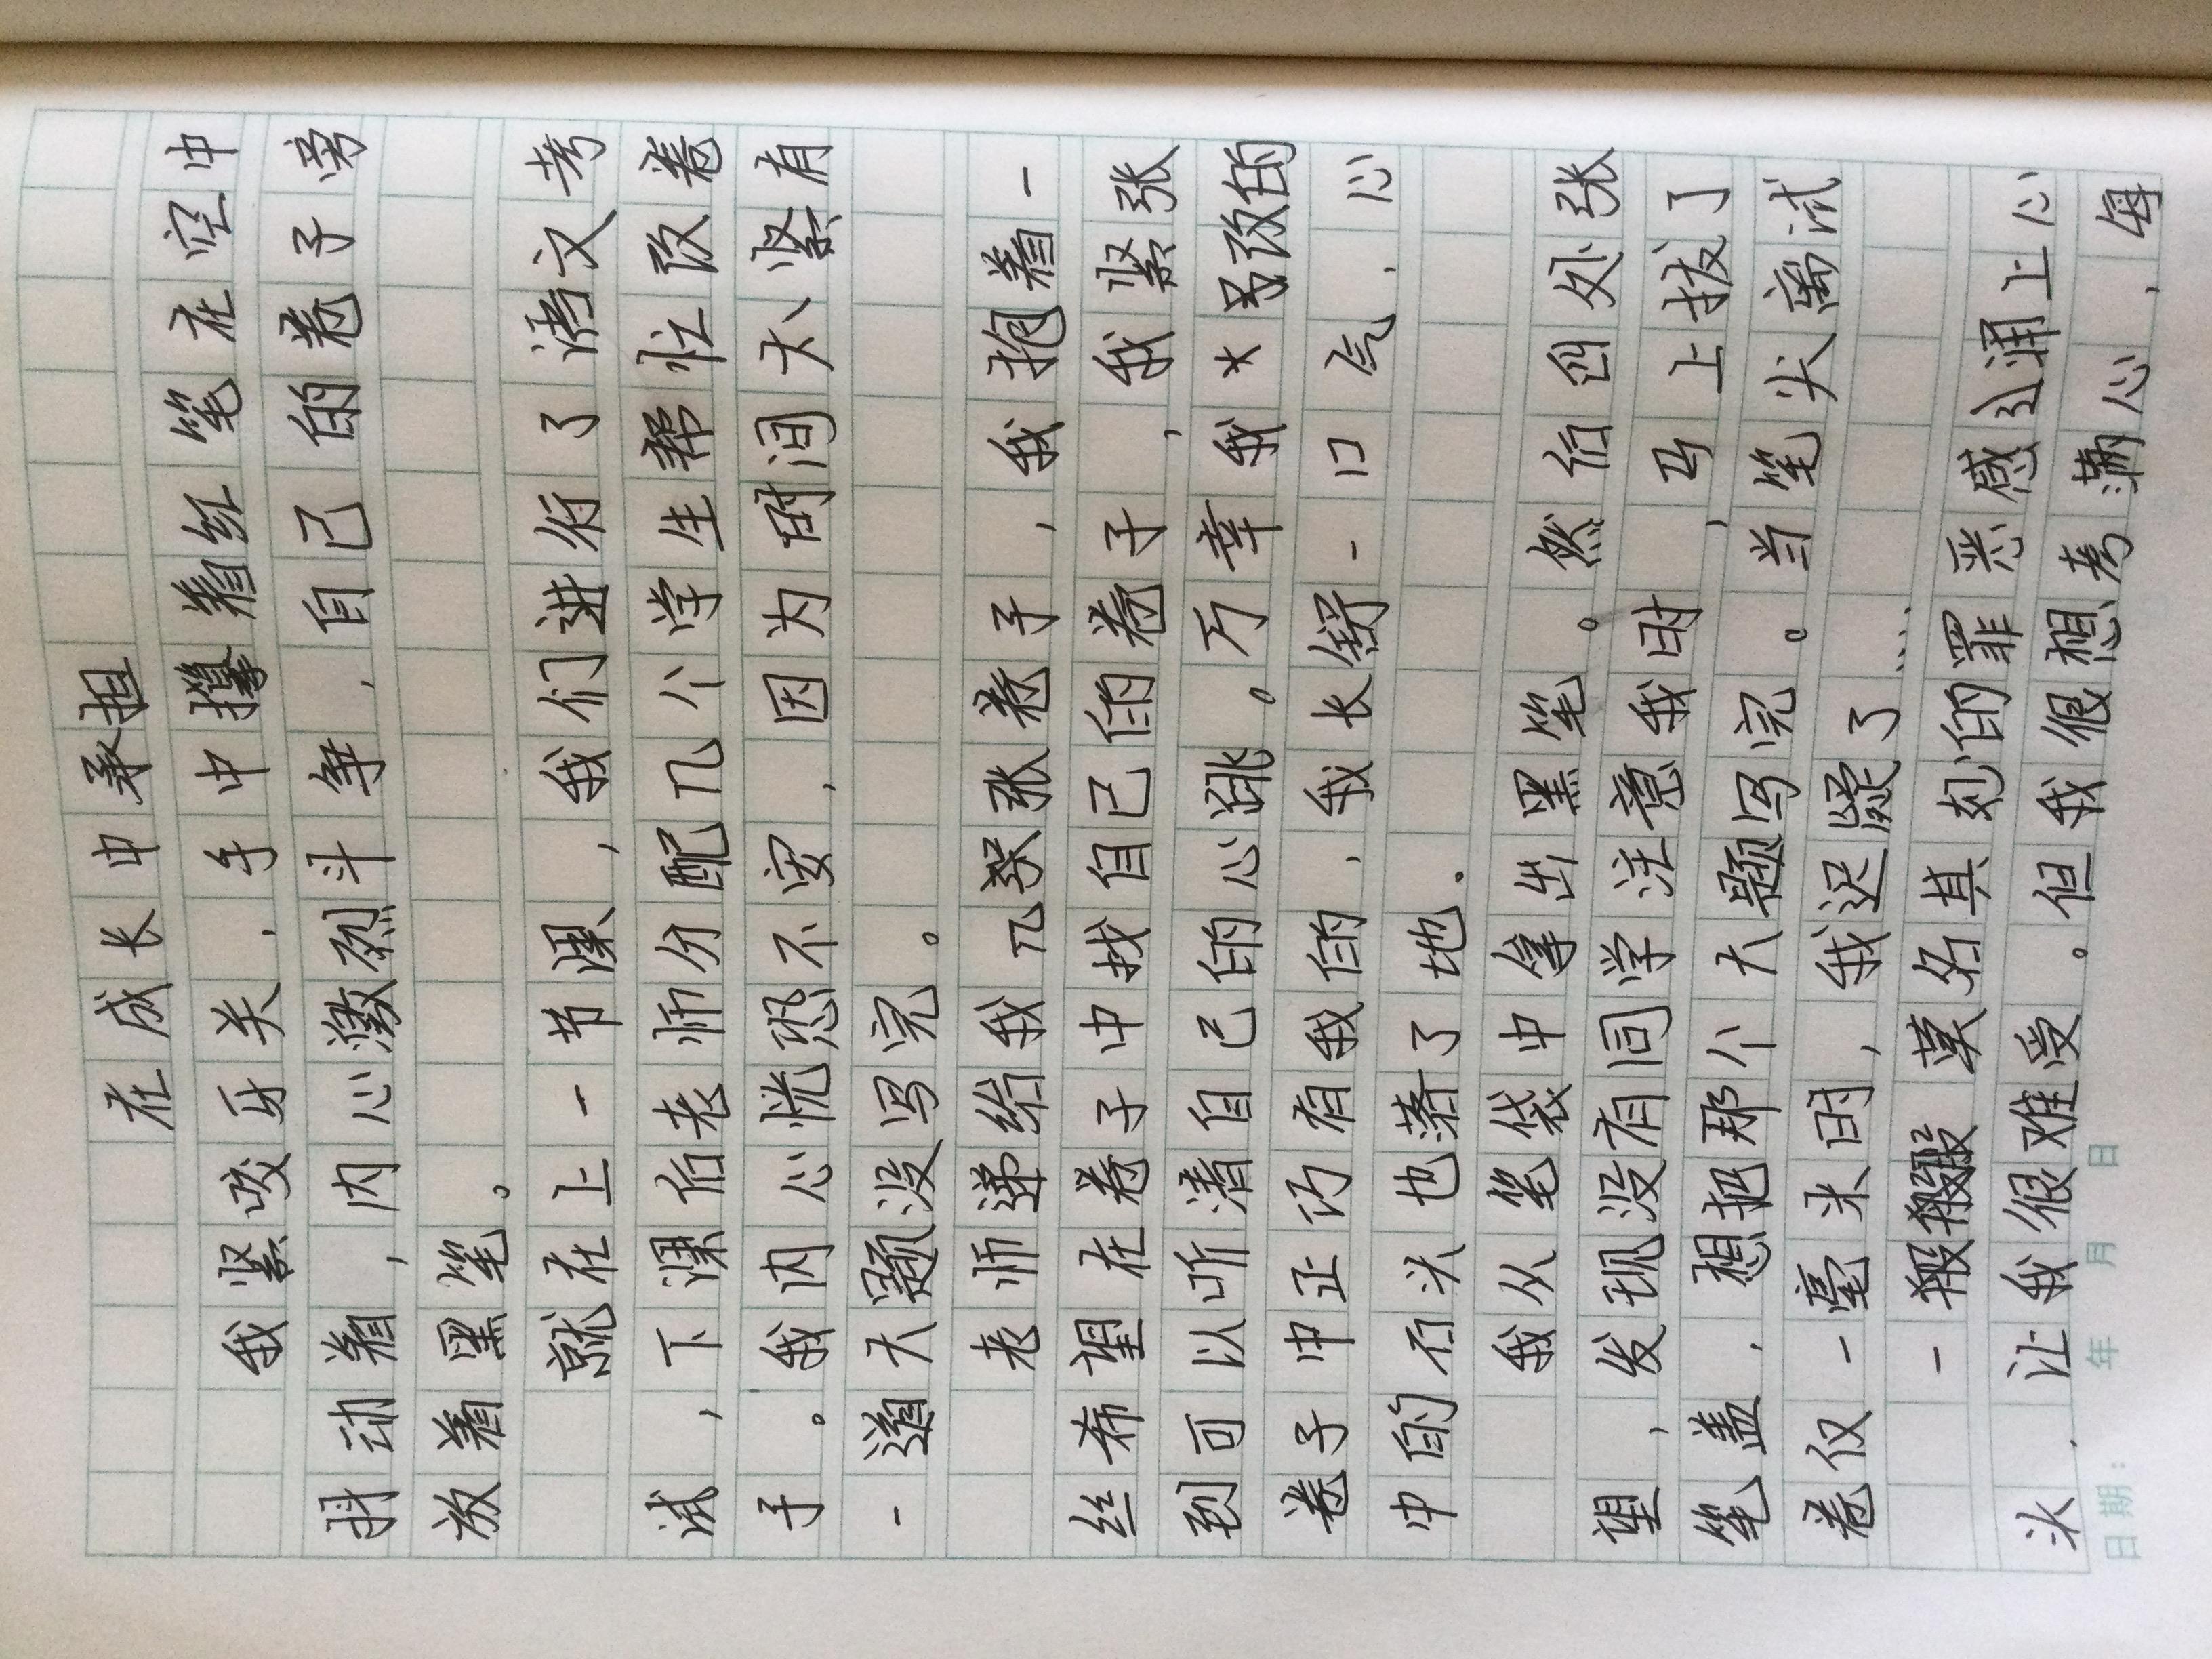 在成长中承担
我紧咬牙关,手中攥着红笔在空中
抖动着,内心激烈斗争,自己的卷子旁
放着黑笔。
就在上一节课,我们进行了语文考
试,下课后老师分配几个学生帮忙改卷
子。我内心慌恐不安,因为时间太紧有
一道大题没写完。
老师递给我几张卷子,我抱着一
丝希望在卷子中找自己的卷子,我紧张
到可以听清自己的心跳。万幸我改的
卷子中正巧有我的,我长舒一口气,心
中的石头也落了地.
我从笔袋中拿出黑笔。然后四处张
望,发现没有同学注意我时,马上拔了
笔盖,想把那个大题写完。当笔尖离试
卷仅一毫米时,我迟疑了....
一股莫名其刻的罪恶感涌上心
头,让我很难受。但我很想考满心,每
日期: 年 月 日